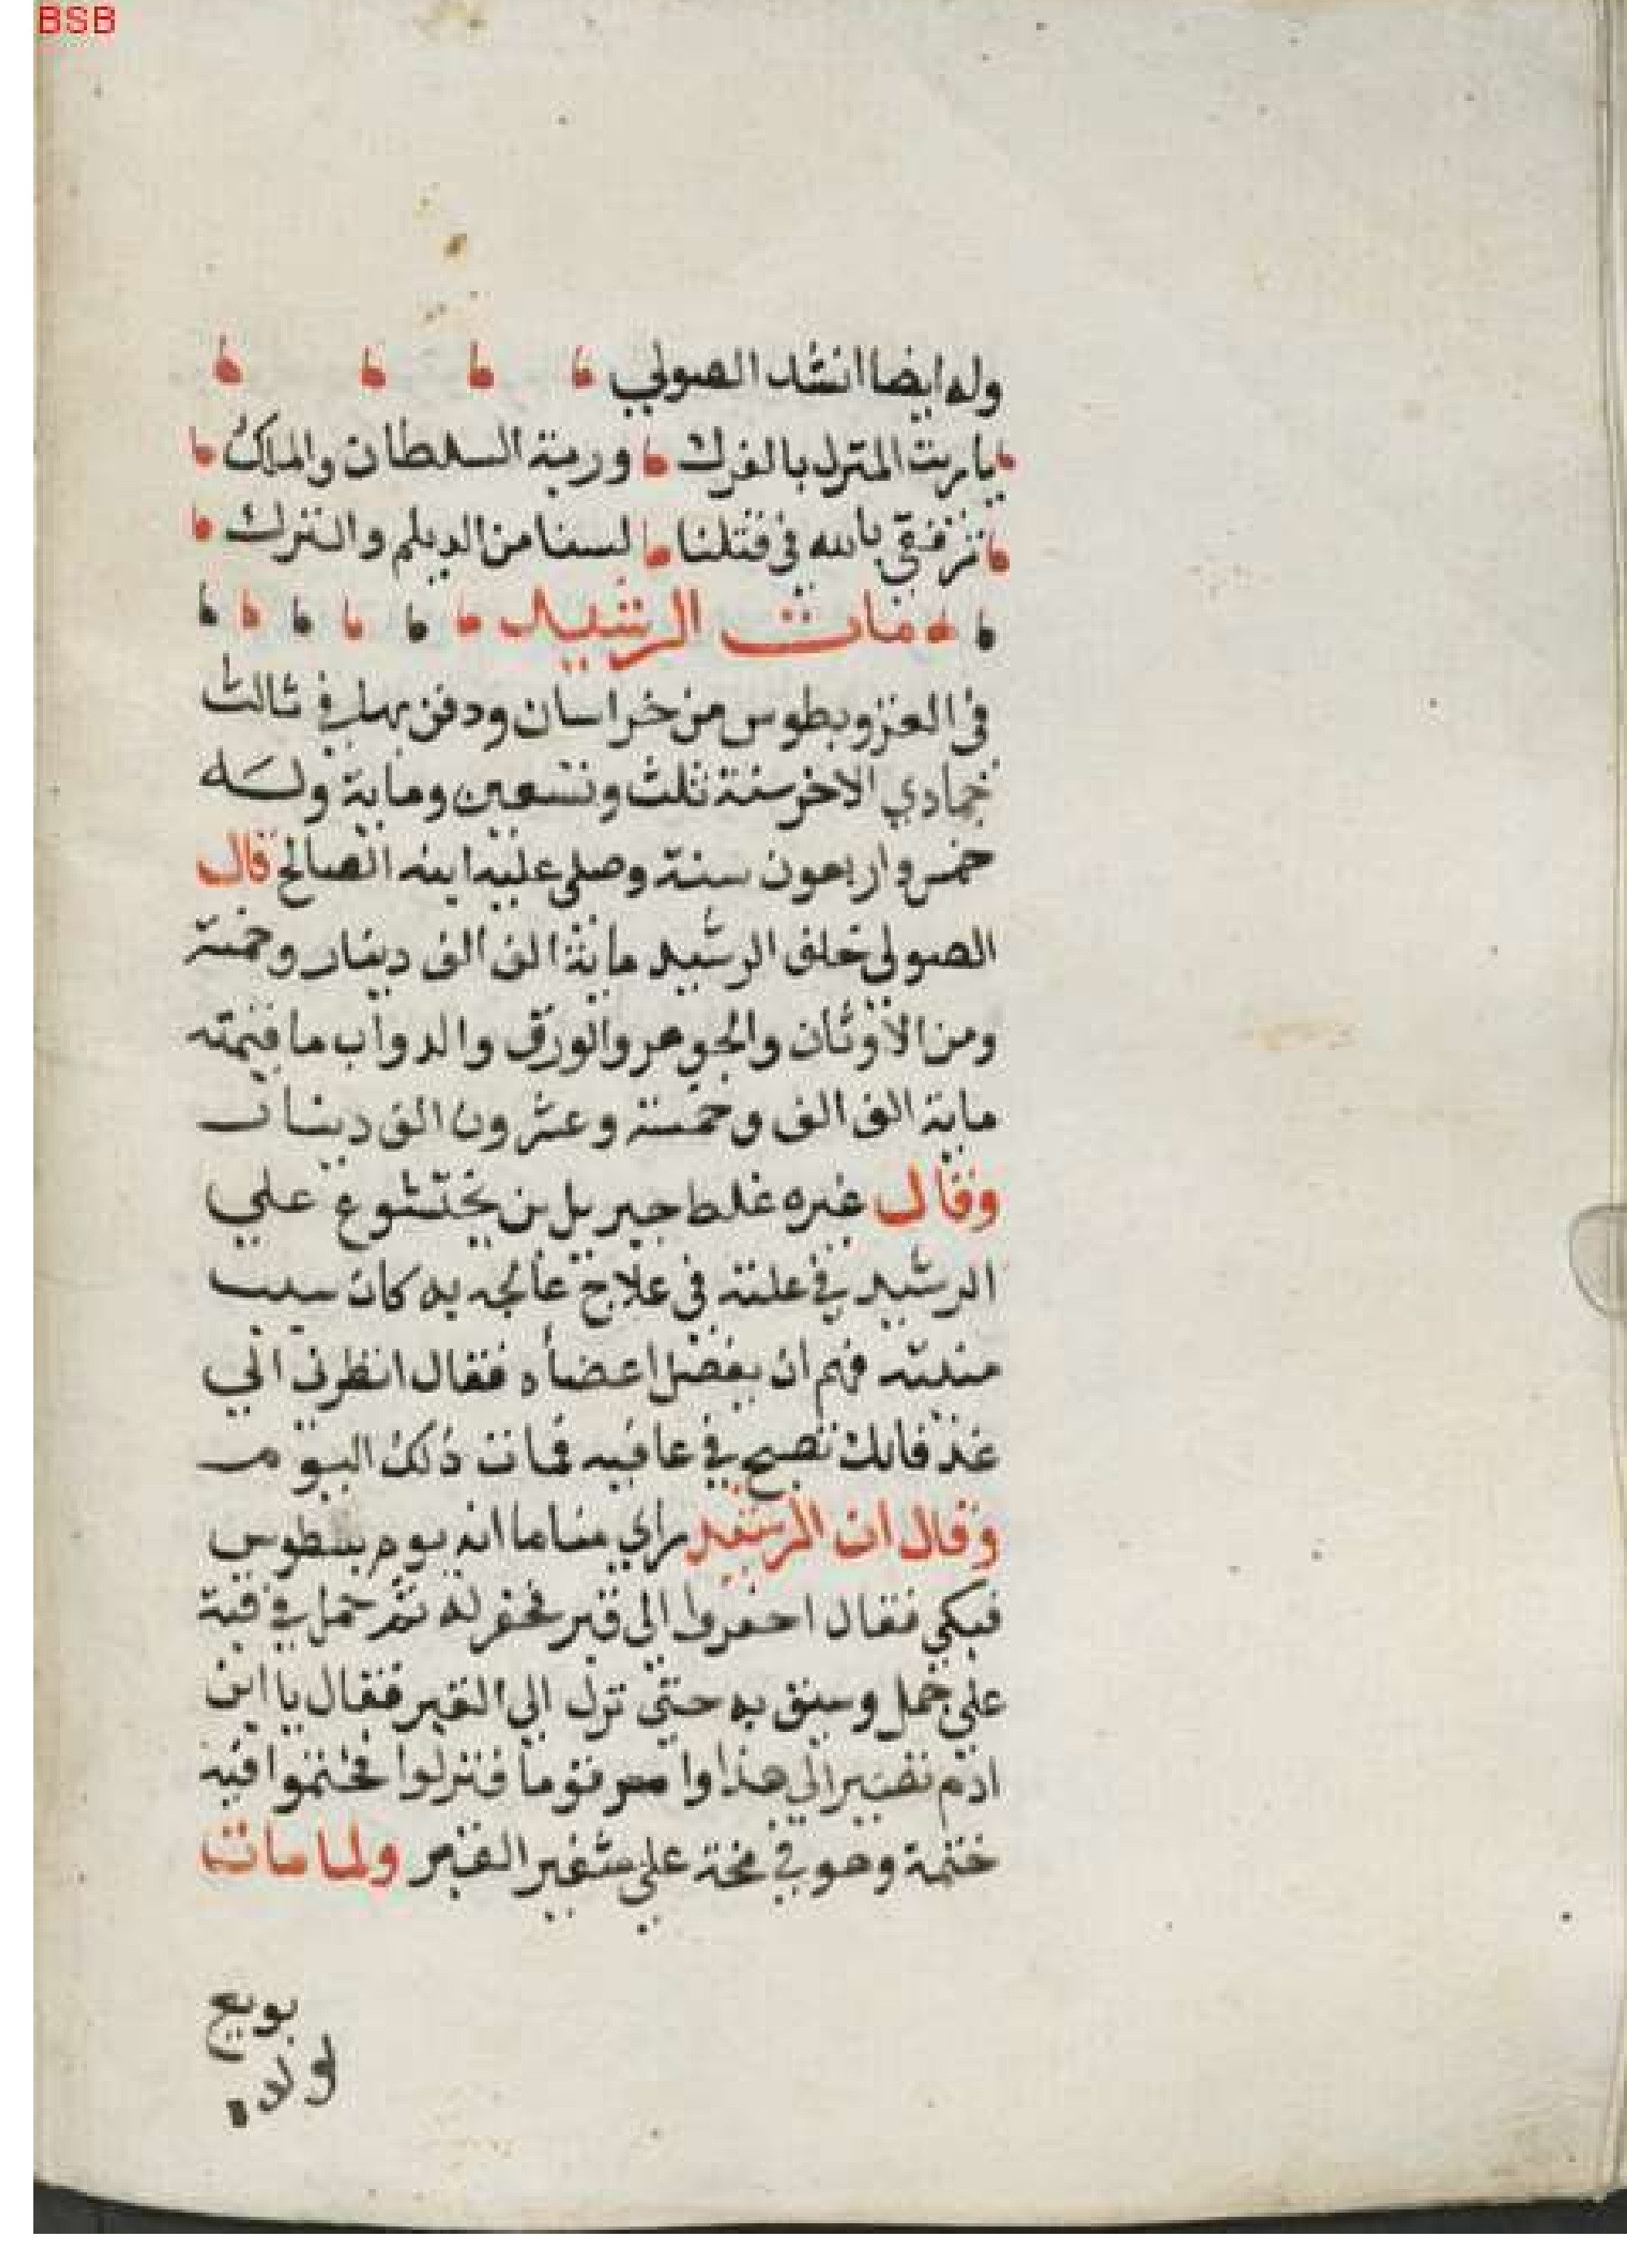 BSB
وله ايضا انشد الصولي
ياربت المنزل بالفرك وربة السلطان والملك
ترفقي بالله في قتلنا لسنا من الديلم والترك
مات الرشيد
في الغزو بطوس من خراسان ودفن بها في ثالث
جمادي الاخر سنة ثلث وتسعين ومابة وله
خمس واربعون سنة وصلي عليه ابنه الصالح قال
الصولي خلف الرشيد مائة الف الف دينار وخمسة
ومن الاوثان والجوهر والورق والدواب ما قيمته
مابة الف الف وخمسة وعشرون الف دينار
وقال غيره غلط جبريل بن بختشوع علي
الرشيد في علته في علاج عالجه به كان سبب
منيته فهم ان يفصل اعضاه فقال انظرني الي
غد فانك تصبح في عافيه فمات ذلك اليوم
وقال ان الرشيد راي مناما انه يوم بطوس
فبكي فقال احفروا الي قبر فحفر له ثم حمل في قبة
علي جمل وسيق به حتي نزل الي القبر فقال يا ابن
ادم تصير الي هذا وامر قوما فنزلوا فختموا فيه
ختمة وهو في محة علي شفير القبر ولما مات
بويع
لولده